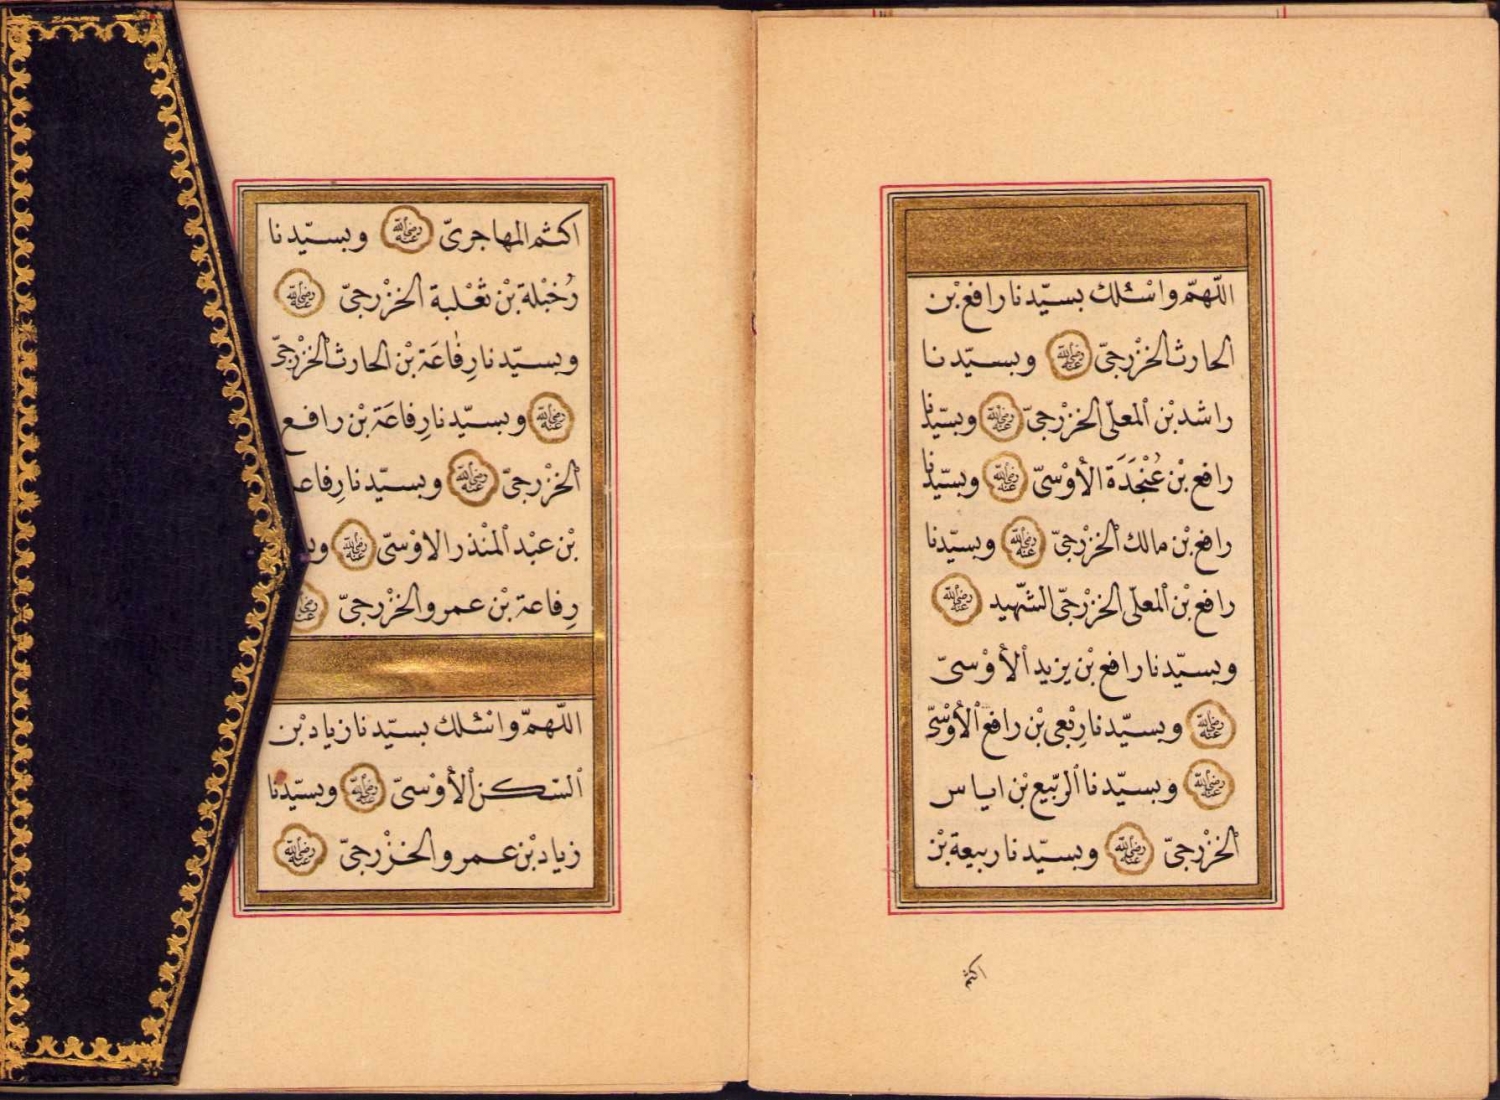 اللّهمّ واسْئلك بسيّدنا رافع بْن
الحارث الخزْرجىّ رضى الله عنه وبسيّدنا
راشد بْن المعلّى الخزْرجىّ رضى الله عنه وبسيّدنا
رافع بْن عُنْجَدَة الأوْسىّ رضى الله عنه وبسيّدنا
رافع بْن مالك الخزْرجىّ رضى الله عنه وبسيّدنا
رافع بْن المعلّى الخزْرجىّ الشّهيد رضى الله عنه
وبسيّدنا رافع بْن يزيد الأوْسىّ
رضى الله عنه وبسيّدنا رِبْعى بْن رافع الأَوْسىّ
رضى الله عنه وبسيّدنا الرّبيع بْن اياس
الخزْرجىّ رضى الله عنه وبسيّدنا ربيعة بْن
اكثم
اكثم المهاجرىّ رضى الله عنه وبسيّدنا
رُخبْلة بْن ثعْلبة الخزْرجىّ رضى الله عنه
وبسيّدنا رِفاعَة بْن الحارث الخزْرجىّ
رضى الله عنه وبسيّدنا رِفاعَة بْن رافع
الخزْرجىّ رضى الله عنه وبسيّدنا رِفاعـ
بْن عبْد المنْذر الاوْسىّ رضى الله عنه وبـ
رِفاعة بْن عمرو الخزْرجىّ رضى الله عنه
اللّهمّ واسْئلك بسيّدنا زياد بْن
السّكن الأوْسىّ رضى الله عنه وبسيّدنا
زياد بْن عمرو الخزْرجىّ رضى الله عنه